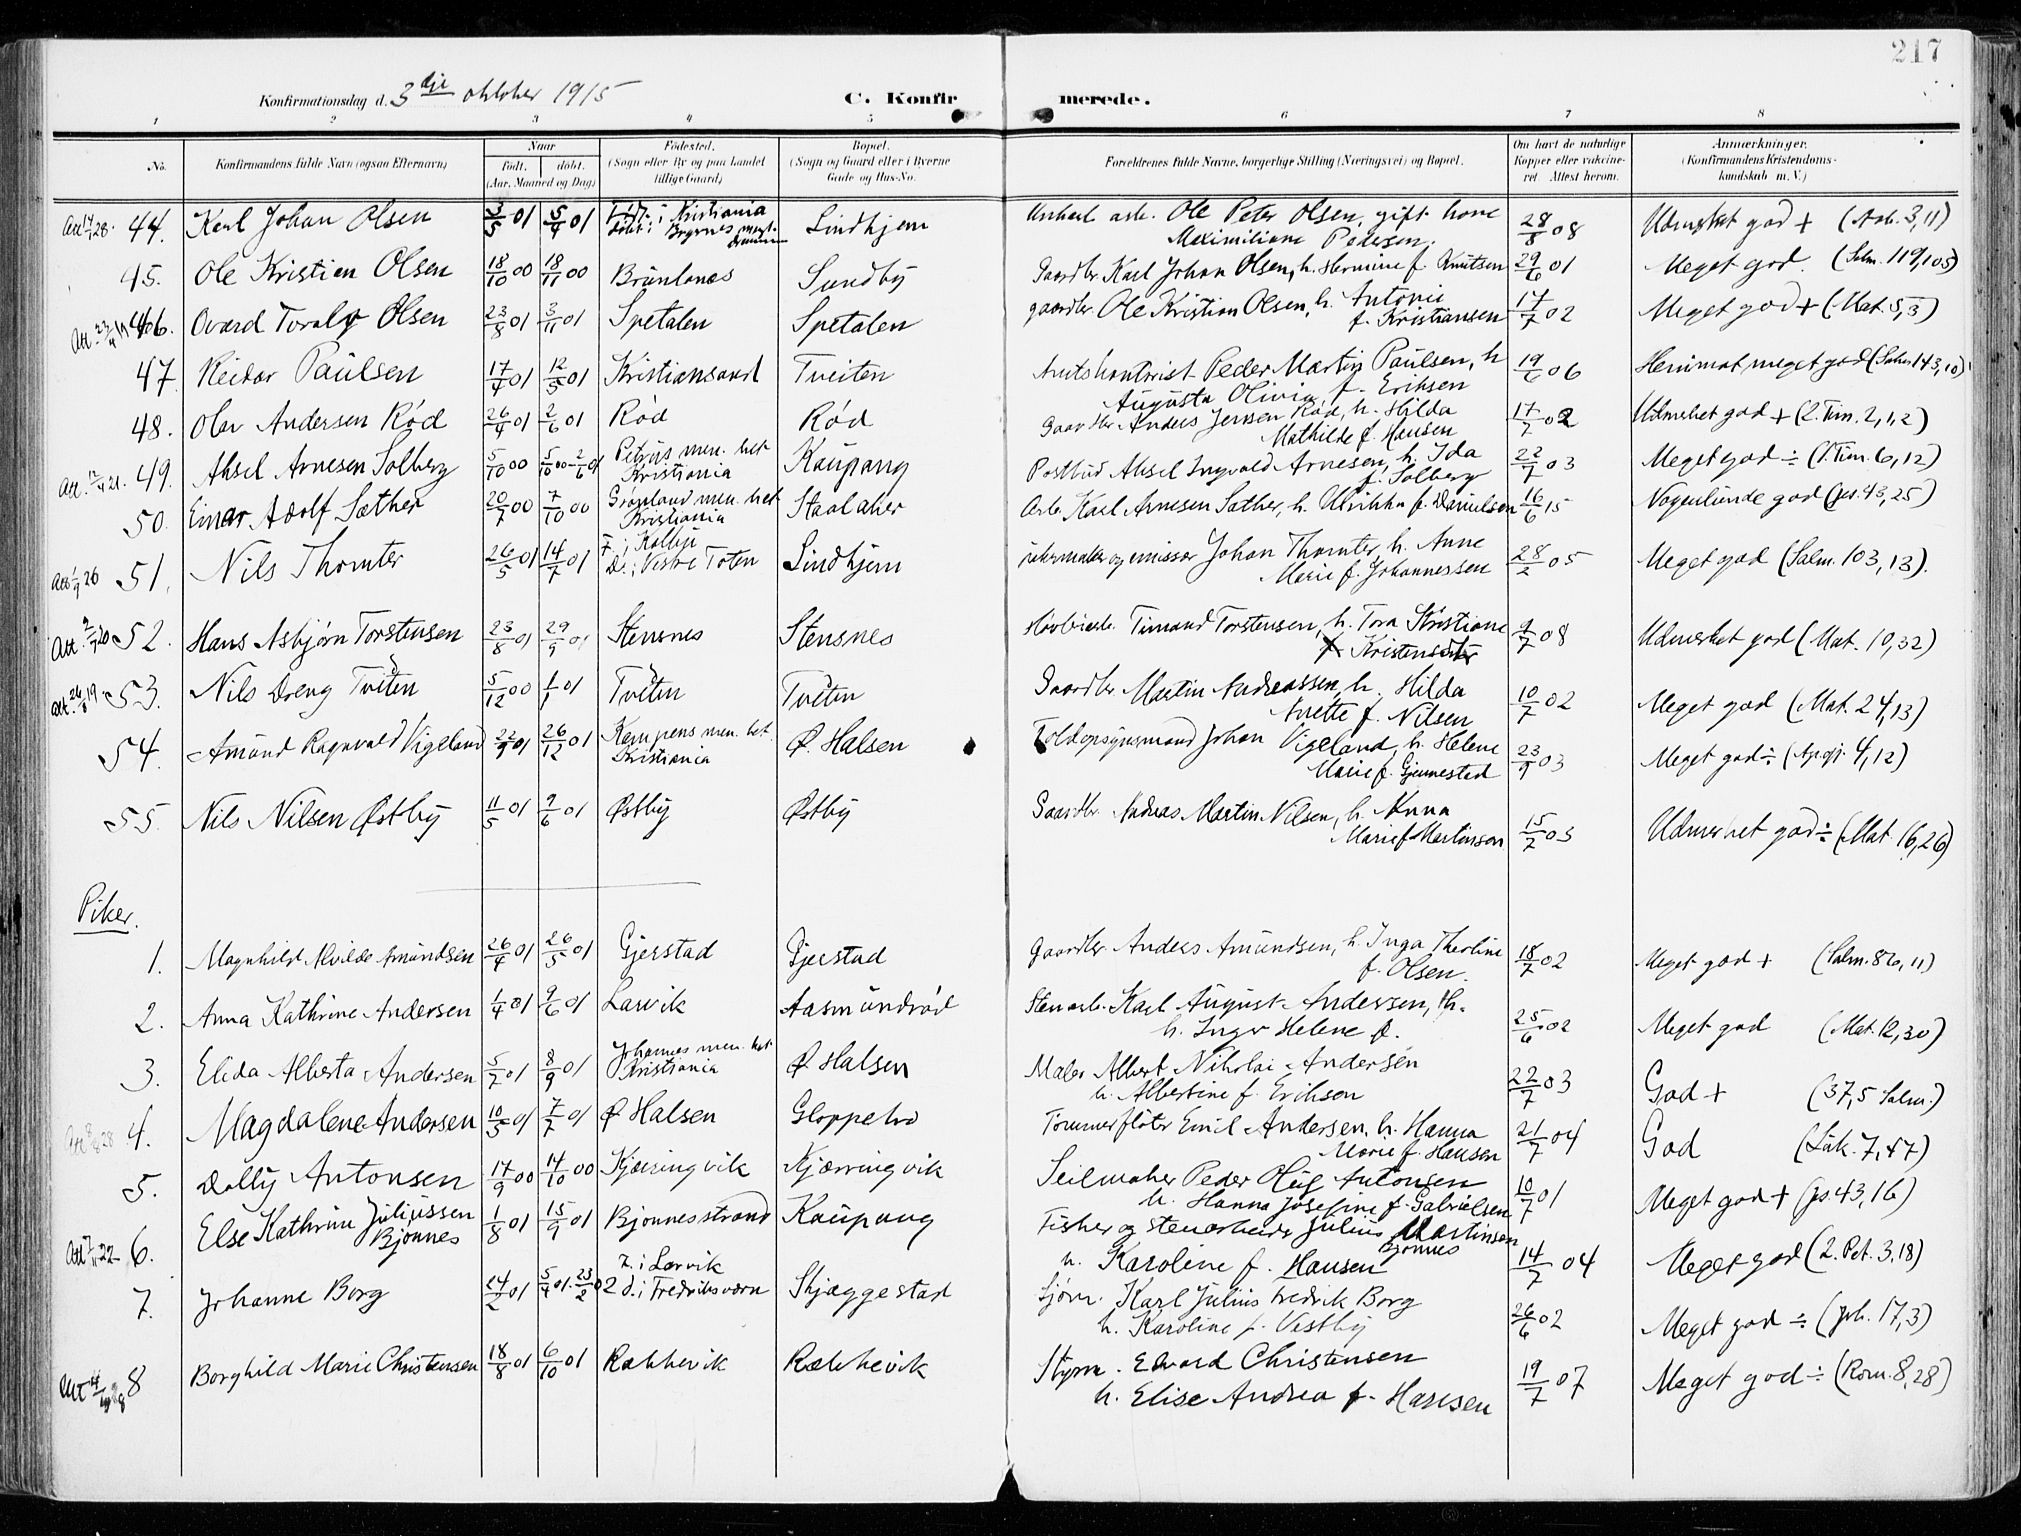 217
Konfirmationsdag d. 3dje oktober 1915 C. Konfirmerede.
1 2 3 4 5 6 7 8
No. Konfirmandens fulde Navn (ogsaa Efternavn) Naar født. døbt. (Aar, Maaned og Dag) Fødested. (Sogn eller By og paa Landet tillige Gaard) Bopæl. (Sogn og Gaard eller i Byerne Gade og Hus-No. Forældrenes fulde Navne, borgerlige Stilling (Næringsvei) og Bopæl. Om havt de naturlige Kopper eller vakcineret Attest herom. Anmærkninger. (Konfirmandens Kristendomskundskab m. V.)
44. Karl Johan Olsen 3/5 01 5/9 01 Kristiania Lindhjem Ole Peter Olsen, gift kone Maximiliane Pedersen. 28/8 08 Udmerket god + (Aab. 3,11)
45. Ole Kristian Olsen 18/10 00 18/11 00 Brunlanes Sundby Gaardbr. Karl Johan Olsen, h. Hermine f. Knutsen 29/6 01 Meget god. (Salm. 119,105)
Att. 46. Ovard Toralv Olsen 23/8 01 3/11 01 Spetalen Spetalen gaardbr. Ole Kristian Olsen, h. Antonie f. Kristiansen 17/7 02 Meget god + (Mat. 5,3)
47 Reidar Paulsen 17/4 01 12/5 01 Kristiansand Tveiten Peder Martin Paulsen, h Augusta Olivia f. Eriksen 19/6 06 meget god (Salm. 143,10)
48. Olav Andersen Rød 26/4 01 2/6 01 Rød Rød Gaardbr. Anders Jensen Rød, h. Hilda Mathilde f. Hansen 17/7 02 Udmerket god + (2. Tim. 2,1,2)
Att. 49. Aksel Arnesen Solberg 5/10 00 Petrus men.het Kristiania Kaupang Postbud Aksel Ingvald Arnesen, h. Ida f. Solberg 22/7 03 Meget god ÷ (1. Tim. 6,12)
50. Einar Adolf Sæther 20/7 00 7/10 00 Grønland men. het Kristiania Staalaker Arb. Karl Arnesen Sæther, h. Ulrikka f. Danielsen 16/6 15 Nogenlunde god (Jes. 43,25)
51. Nils Thomter 26/5 01 14/7 01 F. i Kolbu D. i Vestre Toten Lindhjem urmaker og emissær Johan Thomter h. Anne Marie f. Johannessen 28/2 05 Meget god (Salm. 103,13).
Att. 2/7 20 52. Hans Asbjørn Torstensen 23/8 01 29/9 01 Stensnes Stensnes Timand Torstensen, h. Tora Kristiane f. Kristensen 9/7 08 Udmerket god (Mat. 10,32)
Att. 53. Nils Dreng Tveten 5/12 00 1/1 01 Tveten Tveten Gaardbr. Martin Andreassen, h. Hilda Anette f. Nilsen 10/7 02 Meget god (Mat. 24,13)
54. Amund Ragnvald Vigeland 22/9 01 26/12 01 Kampens men. het. Kristiania Ø. Halsen Toldopsynsmand Johan Vigeland, h. Helene Marie f. Gjennestad 23/9 03 Meget god ÷ (Ap.gj. 4,12)
55. Nils Nilsen Østby 11/5 01 9/6 01 Østby Østby Gaardbr. Andreas Martin Nilsen, h. Anna Marie f Martinsen 15/7 03 Udmerket god ÷ (Mat. 16,26)
Piker.
1. Magnhild Alvilde Amundsen 26/4 01 26/5 01 Gjerstad Gjerstad Gaardbr. Anders Amundsen, h. Inga Theoline f. Olsen. 18/7 02 Meget god + (Salm. 86,11)
2. Anna Kathrine Andersen 1/4 01 9/6 01 Larvik Aasmundrød Stenarb. Karl August Andersen, h. Inger Helene f. 25/6 02 Meget god (Mat. 12,30)
3. Elida Alberta Andersen 5/7 01 8/9 01 Johannes men. het Kristiania Ø Halsen Maler Albert Nikolai Andersen h. Albertine f. Eriksen 22/7 03 God + (37,5 Salm.)
4. Magdalene Andersen 10/5 01 7/7 01 Ø Halsen Gloppebo Tømmerfløter Emil Andersen, h. Hanna Marie f. Hansen 21/7 04 God (Luk. 7,47)
5. Dolly Antonsen 17/9 00 14/10 00 Kjærringvik Kjærringvik Seilmaker Peder Antonsen h. Hanna Josefine f. Gabrielsen 10/7 01 Meget god + (Js. 43,16)
Att 22 6. Else Kathrine Juliussen Bjønnes 1/8 01 15/9 01 Bjønnesstrand Kaupang Fisker og stenarbeider Julius Martinsen Bjønnes h. Karoline f. Hansen 14/7 04 Meget god (2. Pet. 3,18)
7. Johanne Borg 24/2 01 5/4 01. 23/2 02 F. i Larvik d. i Fredriksværn Skjæggestad Sjøm. Karl Julius Fredrik Borg h. Karoline f. Vestby 26/6 02 Meget god ÷ (Joh. 17,3)
8 Borghild Marie Christensen 18/8 01 6/10 01 Rækkevik Rækkevik Styrm. Edvard Christensen h. Elise Andrea f. Hansen 19/7 07 Meget god ÷ (Rom. 8,28)